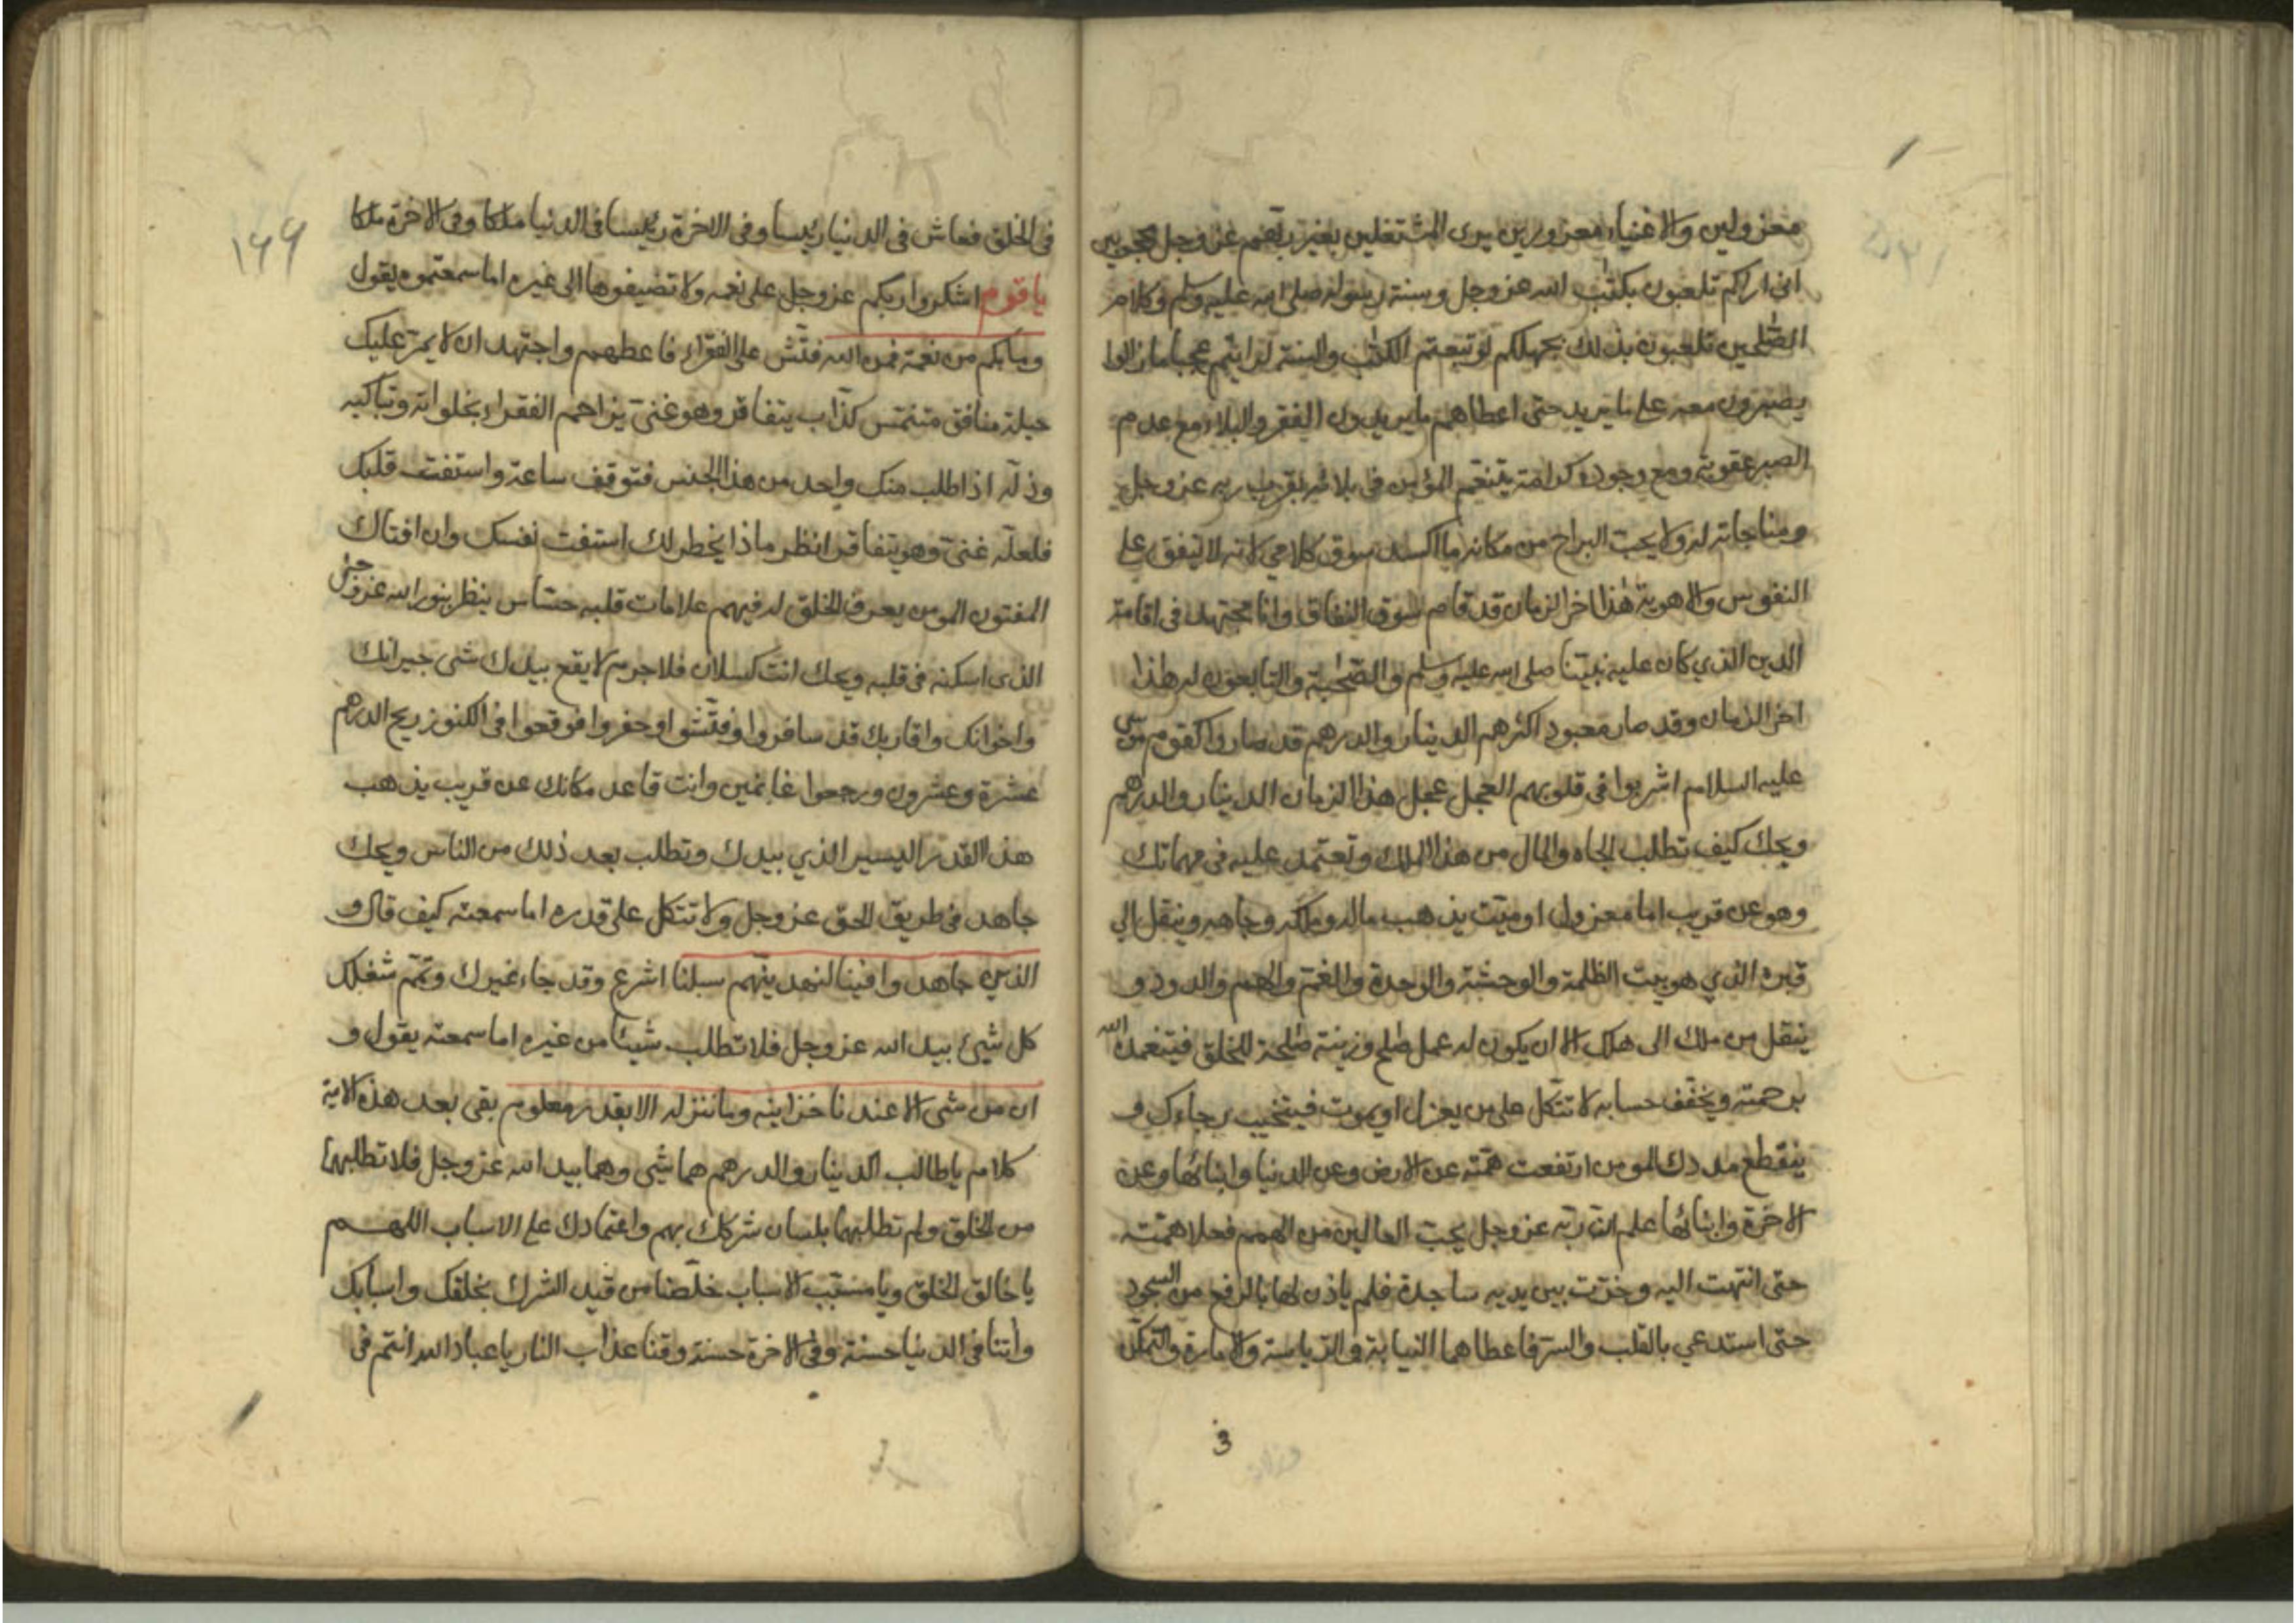 معزولين والاغنياء معزورين يرى المشتغلين بغير ربهم عز وجل محجوبين
انى اراكم تلعبون بكتٰب الله عز وجل وسنة رسوله صلى الله عليه وسلم وكلام
الصّٰلحين تلعبون بذلك بجهلكم لو تبعتم الكتٰب والسنة لرايتم عجبا ما زالوا
يصبرون معه على ما يريد حتى اعطاهم ما يريدون الفقر والبلاء مع عدم
الصبر عقوبة ومع وجوده كرامة يتنعّم المؤمن فى بلائه بقرب ربه عز وجل
ومناجاته له ولا يحبّ البراح من مكانه ما اكسد سوق كلامي لانه لا ينفق على
النفوس والاهوية هٰذا اخر الزمان قد قام سوق النفاق وانا مجتهد فى اقامة
الدين الذي كان عليه نبيّنا صلى الله عليه وسلم والصّحٰبة والتابعون له هٰذا
اخر الزمان وقد صار معبود اكثرهم الدينار والدرهم قد صاروا كقوم موسى
عليه السلام اشربوا فى قلوبهم العجل عجل هذا الزمان الدينار والدرهم
ويحك كيف تطلب الجاه والمال من هذا الملك وتعتمد عليه فى مهماتك
وهو عن قريب اما معزول او ميّت يذهب ماله وملكه وجاهه وينقل الي
قبره الذي هو بيت الظلمة والوحشة والوحدة والغمّ والهم والدود و
ينقل من ملك الى هلك الا ان يكون له عمل صٰلح ونية صٰلحة للخلق فيتغمده الله
برحمته ويخفّف حسابه لا تتّكل على من يعزل او يموت فيتخيب رجاءك و
ينقطع مددك المومن ارتفعت همّته عن الارض وعن الدنيا وابنائها وعن
الاخرة وابنائها علم انّ ربّه عز وجل يحبّ العالين من الهمم فعلا همّته
حتى انتهت اليه وخرّت بين يديه ساجدة فلم ياذن لها بالرفع من السجود
حتى استدعي بالقلب والسّر فاعطاهما النيابة والرّياسة والامارة والتمكّن
3
١٩٩
فى الخلق فعاش فى الدنيا رئيسا وفى الاخرة رئيسا فى الدنيا ملكا وفى الاخرة ملكا
يا قوم اشكروا ربكم عز وجل على نعمه ولا تضيفوها الى غيره اما سمعتموه يقول
وما بكم من نعمة فمن الله فتّش على الفقراء فاعطهم واجتهد ان لا يمرّ عليك
حيلة منافق متنمّس كذّاب يتفاقر وهو غنىّ يزاحم الفقراء بخلواته وتباكيه
وذلّه اذا طلب منك واحد من هذا الجنس فتوقف ساعة واستفت قلبك
فلعلّه غنىّ وهو يتفاقر انظر ماذا يخطر لك استفت نفسك وان افتاك
المفتون المومن يعرف الخلق له فيهم علامات قلبه حسّاس ينظر بنور الله عز وجل
الذى اسكنه فى قلبه ويحك انت كسلان فلا جرم لا يقع بيدك شى جيرانك
واخوانك واقاربك قد سافروا وفتّشوا وحفروا فوقعوا فى الكنوز ربح الدرهم
عشرة وعشرون ورجعوا غانمين وانت قاعد مكانك عن قريب يذهب
هذا القدر اليسير الذي بيدك وتطلب بعد ذلك من الناس ويحك
جاهد فى طريق الحق عز وجل ولا تتكل على قدره اما سمعته كيف قال و
الذين جاهدوا فينا لنهدينّهم سبلنا اشرع وقد جاء غيرك وتمّم شغلك
كل شيئ بيد الله عز وجل فلا تطلب شيئا من غيره اما سمعته يقول و
ان من شى الا عندنا خزاينه وما ننزله الا بقدر معلوم بقى بعد هذه الاية
كلام يا طالب الدينار والدرهم هما شى وهما بيد الله عز وجل فلا تطلبهما
من الخلق ولم تطلبهما بلسان شركك بهم واعتمادك على الاسباب اللهم
يا خالق الخلق ويا مسبّب الاسباب خلّصنا من قيد الشرك بخلقك واسبابك
وآتنا فى الدنيا حسنة وفى الاخرة حسنة وقنا عذاب النار يا عباد الله انتم فى